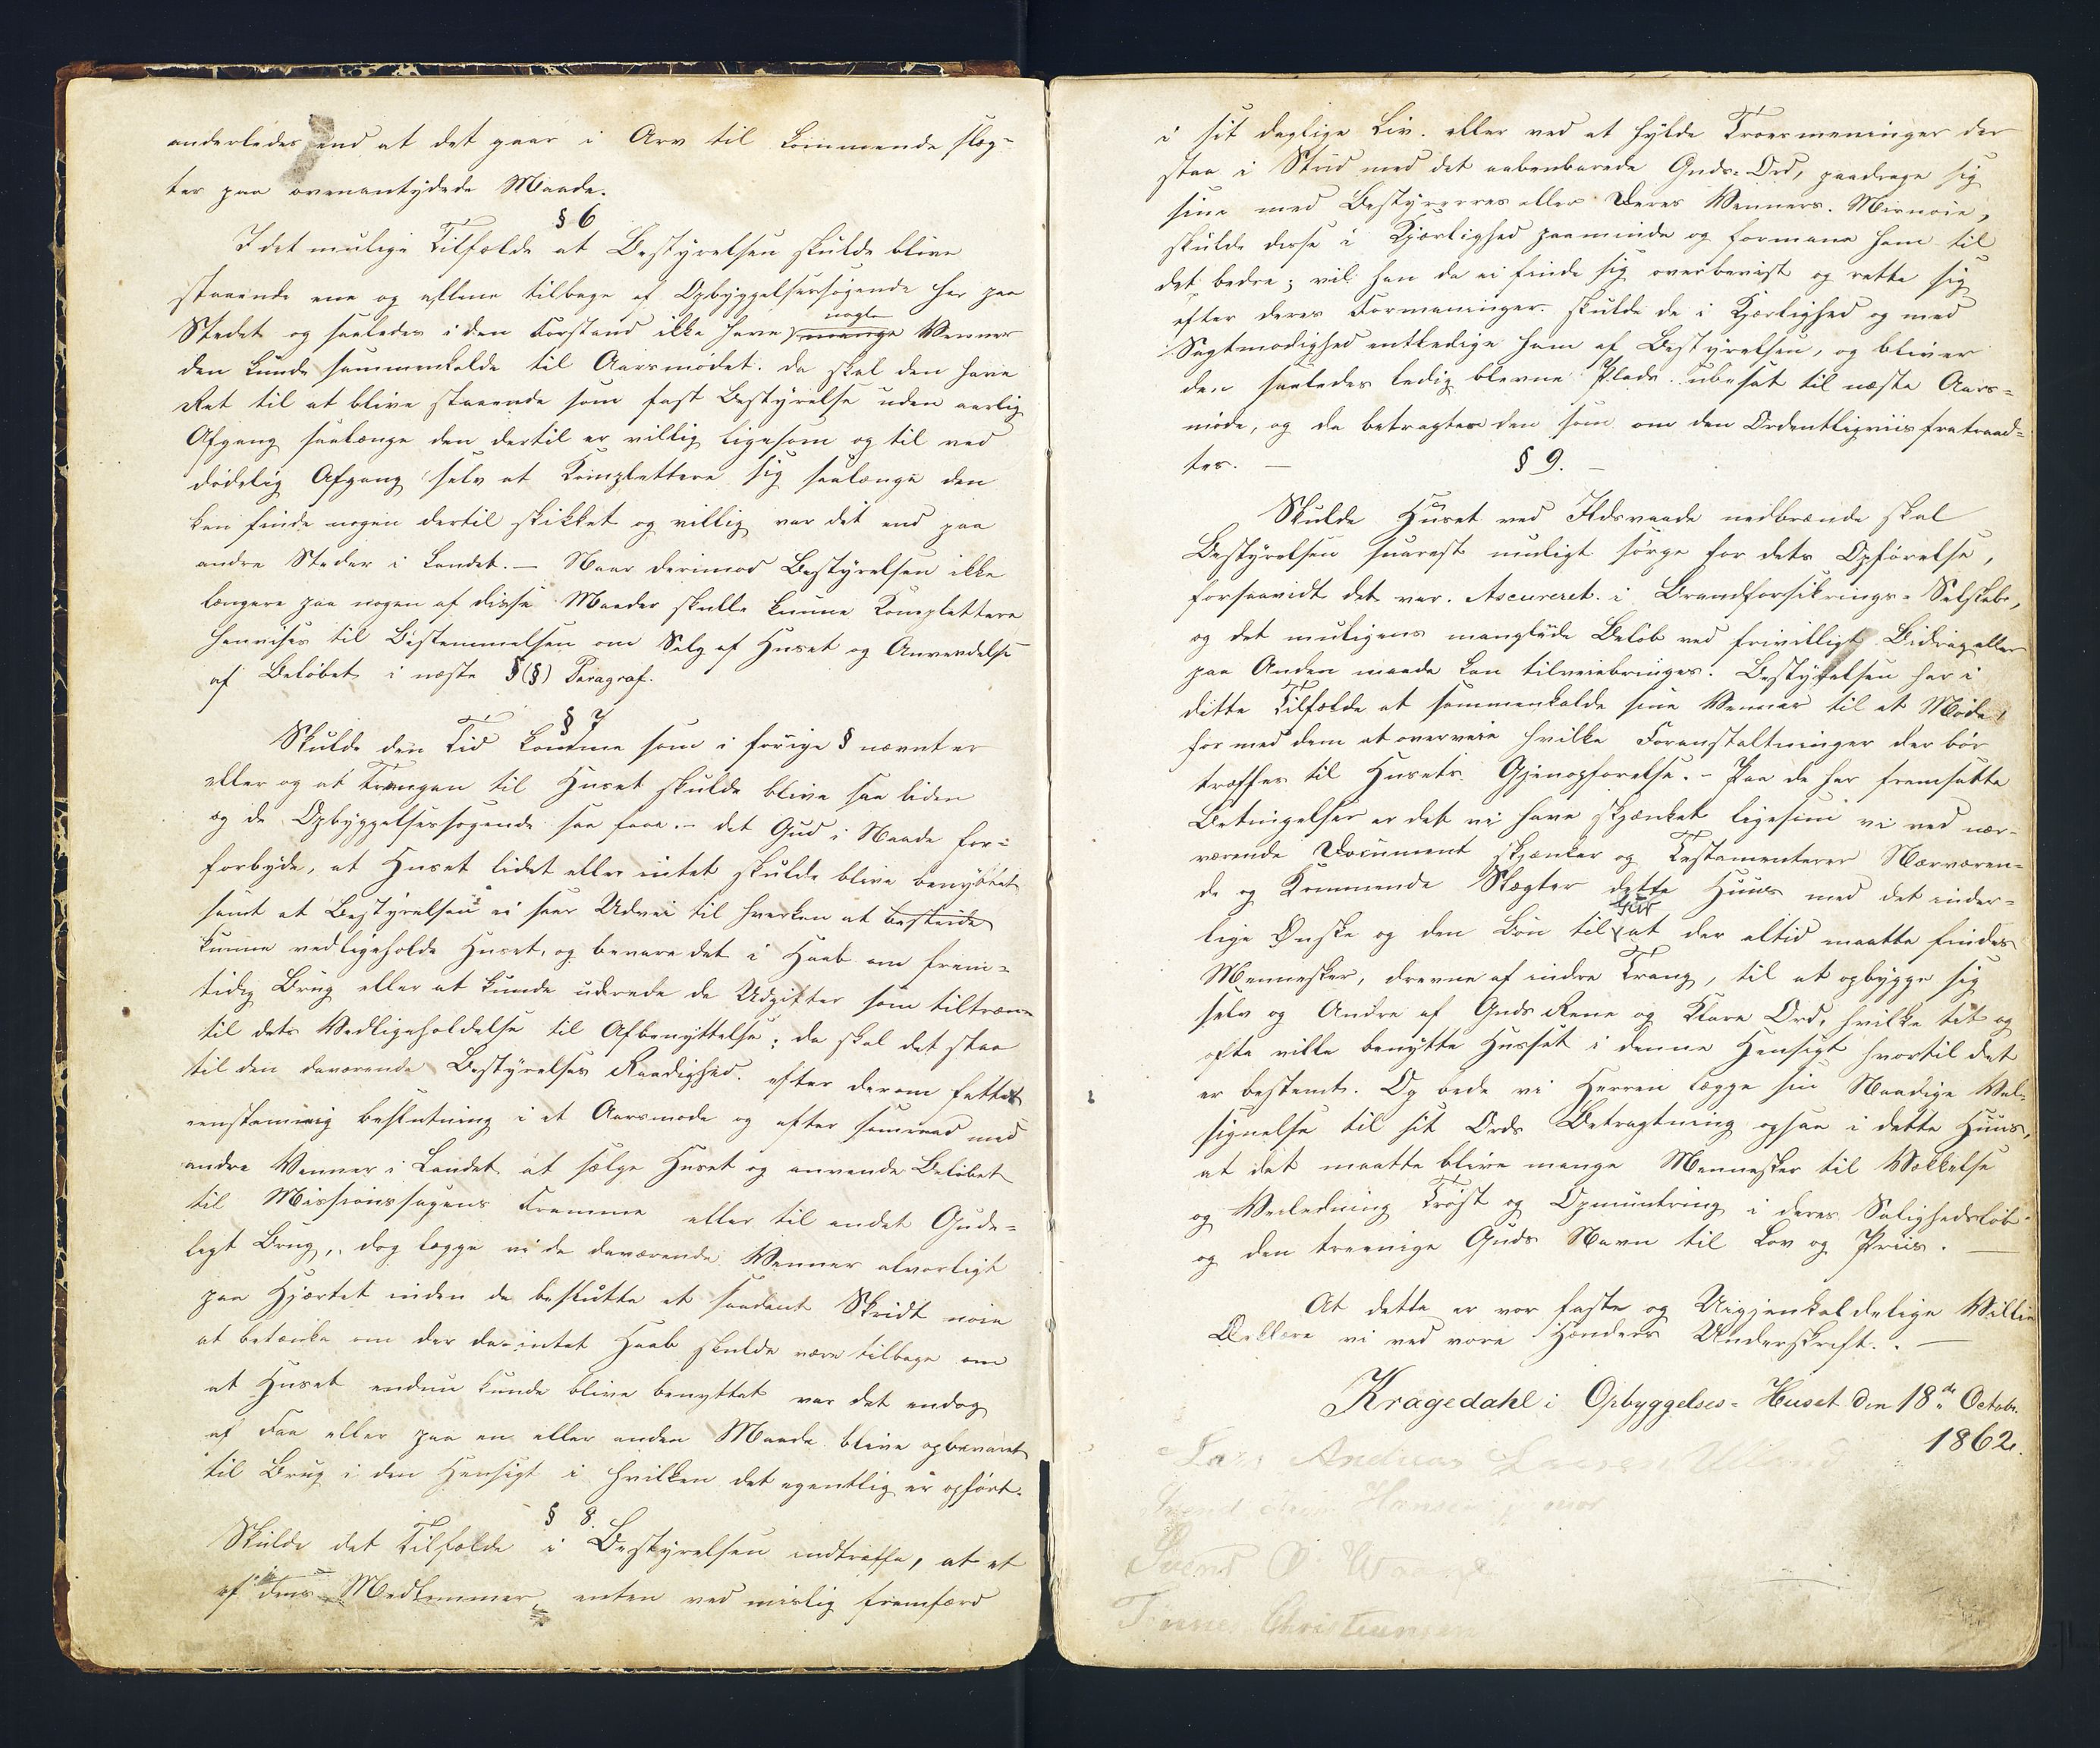 anderledes end at det gaar i Arv til kommende Slæg-
ter paa ovenantydede Maade.
§ 6
I det mulige Tilfælde at Bestyrelsen skulde blive
staaende ene og allene tilbage af Opbyggelsessøgende her paa
Stedet og saaledes i den Forstand ikke have mange nogle Venner
den kunde sammenkalde til Aarsmødet. da skal den have
Ret til at blive staaende som fast Bestyrelse uden aarlig
Afgang saalænge den dertil er villig ligesom og til ved
dødelig Afgang selv at Kompletere sig saalænge den
kan finde nogen dertil skikket og villig var det end paa
andre Steder i Landet. — Naar derimod Bestyrelsen ikke
længere paa nogen af disse Maader skulle kunne Komplettere
henvises til Bestemmelsen om Salg af Huset og Anvendelse
af Beløbet i næste § (§) Paragraf.
§ 7
Skulde den Tid komme som i forrige § nævnt er
eller og at Trangen til Huset skulde blive saa liden
og de Opbyggelsessøgende saa faae. – det Gud i Naade for-
forbyde, at Huset lidet eller intet skulde blive benyttet
samt at Bestyrelsen ei saae Udvei til hverken at bestride
kunne vedligeholde Huset, og bevare det i Haab om frem-
tidig Brug eller at kunde udrede de Udgifter som tiltræn
til dets Vedligeholdelse til Afbenyttelse; da skal det staa
til den daværende Bestyrelses Raadighed. efter derom fattet
eenstemmig beslutning i et Aarsmøde og efter samraad med
andre Venner i Landet at sælge Huset og anvende Beløbet
til Missionssagens Fremme eller til andet Gude-
ligt Brug, dog lægge vi de daværende Venner alvorligt
paa Hjærtet inden de beslutte et saadant Skridt nøie
at betænke om der da intet Haab skulde være tilbage om
at Huset endnu kunde blive benyttet var det endog
af Faa eller paa en eller anden Maade blive opbevaret
til Brug i den Hensigt i hvilken det egentlig er opført.
§ 8.
Skulde det Tilfælde i Bestyrelsen indtræffe, at et
af dens Medlemmer, enten ved mislig fremfærd
i sit daglige Liv. eller ved at hylde Troesmeninger der
staa i Strid med det aabenbarede Guds-Ord, paadrage sig
sine med Bestyreres eller Deres Venners. Misnøie,
skulde disse i Kjærlighed paaminde og formane ham til
det bedre; vil han da ei finde sig overbevist og rette sig
efter deres Formaninger. skulde de i Kjærlighed og med
Sagtmodighed entledige ham af Bestyrelsen, og bliver
den saaledes ledig blevne Plads. ubesat til næste Aars-
møde, og da betragtes den som om den Ordentligviis fratraad-
tes. —
§ 9. —
Skulde Huset ved Ildsvaade nedbrænde skal
Bestyrelsen snarest muligt sørge for dets Opførelse,
forsaavidt det var. Ascureret. i Brandforsikrings-Selskab,
og det muligens manglende Beløb ved frivilligt Bidrag eller
paa Anden maade kan tilveiebringes. Bestyrelsen har i
ditte Tilfælde at sammenkalde sine Venner til et Møde,
for med dem at overveie hvilke Foranstaltninger der bør
træffes til Husets Gjenopførelse. – Paa de her fremsatte
Betingelser er det vi have skjænket ligesom vi ved nær-
værende Document skjænker og Testamenterer Nærværen-
de og Kommende Slægter dette Huus med det inder-
lige Ønske og den Bøn til Gud at der altid maatte findes
Mennesker, drevne af indre Trang, til at opbygge sig
selv og Andre af Guds Rene og Klare Ord, hvilke tit og
ofte ville benytte Husset i denne Hensigt hvortil det
er bestemt. Og bede vi Herren lægge sin Naadige Vel-
signelse til sit Ords Betragtning ogsaa i dette Huus,
at det maatte blive mange Mennesker til Vækkelse
og Veiledning Trøst og Opmuntring i deres Salighedsløb
og den treenige Guds Navn til Lov og Priis. —
At dette er vor faste og Uigjenkaldelige Villie
Deklære vi ved vore Hænders Underskrift. . —
Kragedahl i Opbyggelses-Huset den 18de Octobr.
1862.
Lars Andreas Larsen
Hansen
Svend
Tønnes Christensen